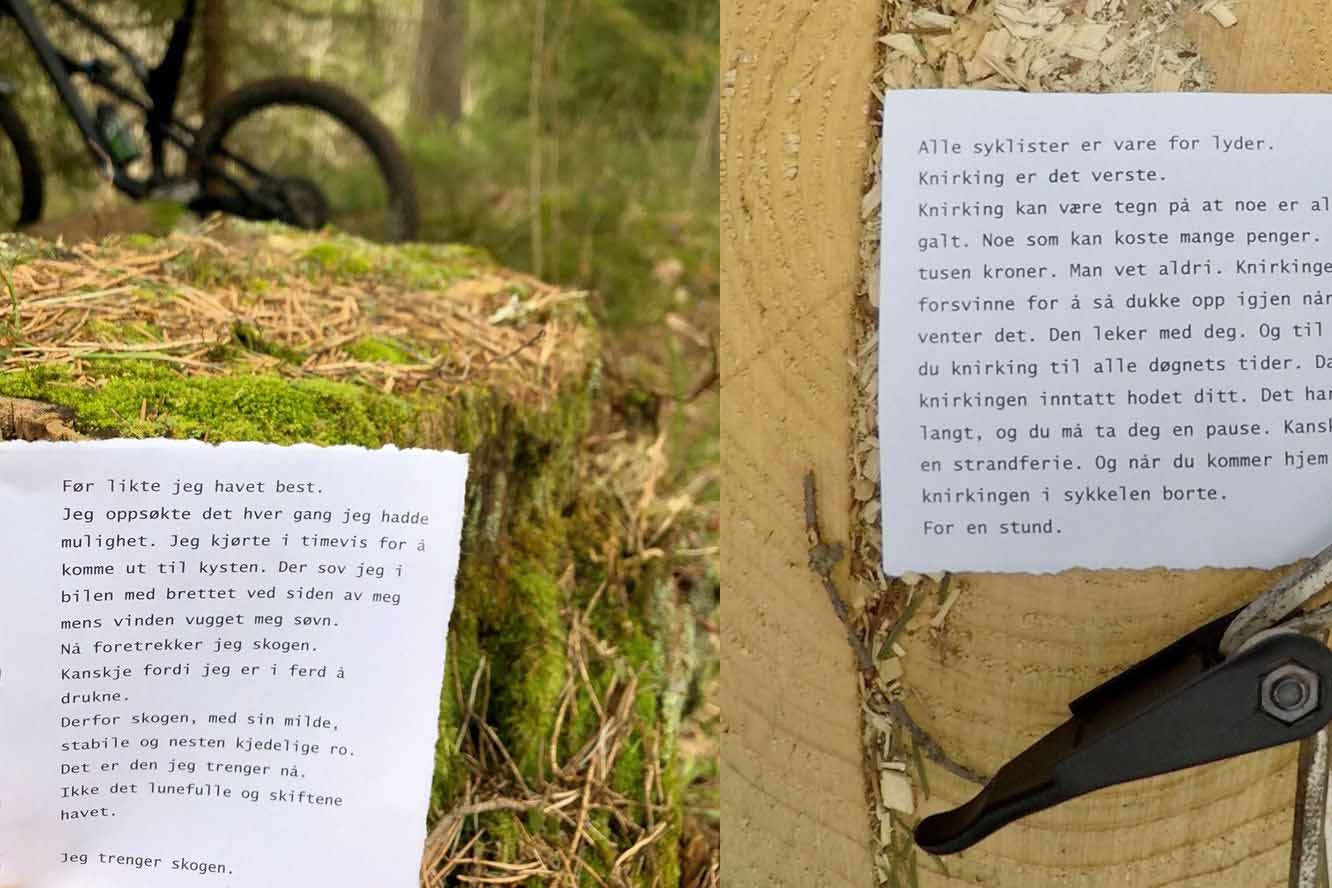 Før likte jeg havet best.
Jeg oppsøkte det hver gang jeg hadde
mulighet. Jeg kjørte i timevis for å
komme ut til kysten. Der sov jeg i
bilen med brettet ved siden av meg
mens vinden vugget meg søvn.
Nå foretrekker jeg skogen.
Kanskje fordi jeg er i ferd å
drukne.
Derfor skogen, med sin milde,
stabile og nesten kjedelige ro.
Det er den jeg trenger nå.
Ikke det lunefulle og skiftene
havet.
Jeg trenger skogen.
Alle syklister er vare for lyder.
Knirking er det verste.
Knirking kan være tegn på at noe er
galt. Noe som kan koste mange penger.
tusen kroner. Man vet aldri.
forsvinne for å så dukke opp igjen
venter det. Den leker med deg. Og til
du knirking til alle døgnets tider.
knirkingen inntatt hodet ditt. Det
langt, og du må ta deg en pause.
en strandferie. Og når du kommer hjem
knirkingen i sykkelen borte.
For en stund.